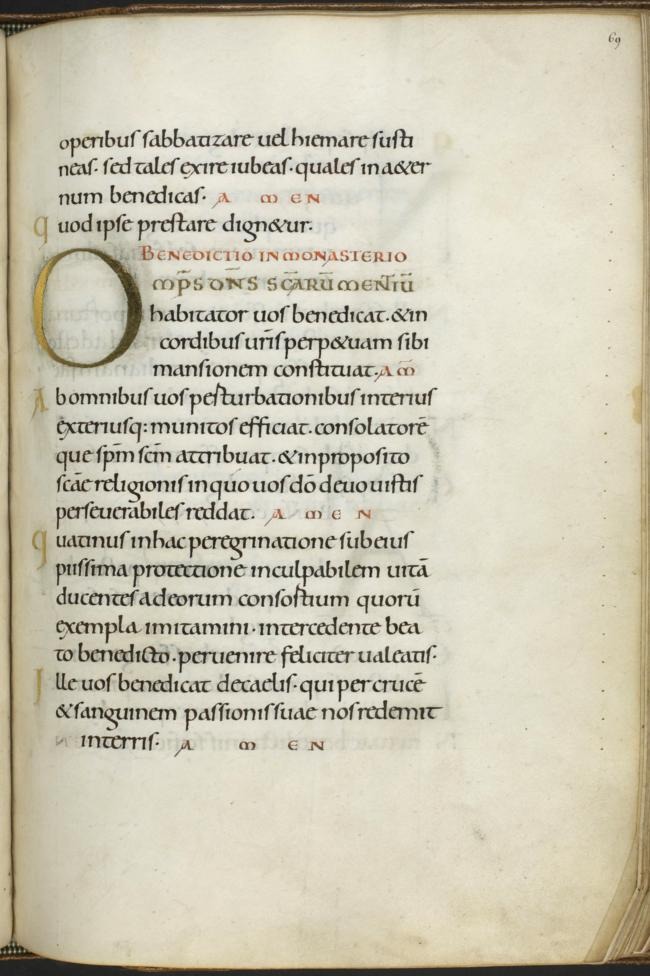 69
operibus sabbatizare uel hiemare susti
neas. sed tales exire iubeas. quales in a&er
num benedicas. A M E N
quod ipse prestare dign&ur.
BENEDICTIO IN MONASTERIO
OMP̄S DN̄S SC̄ARŪ MENTIŪ
habitator uos benedicat. & in
cordibus ur̄is perp&uam sibi
mansionem constituat. AM̄
Ab omnibus uos perturbationibus interius
exteriusq: munitos efficiat. consolatorē
que sp̄m sc̄m attribuat. & in proposito
sc̄ae religionis in quo uos dō deuouistis
perseuerabiles reddat. A M E N
quatinus in hac peregrinatione sub eius
piissima protectione inculpabilem uitā
ducentes ad eorum consortium quorū
exempla imitamini. intercedente bea
to benedicto. peruenire feliciter ualeatis.
Ille uos benedicat de caelis. qui per crucē
& sanguinem passionis suae nos redemit
in terris. A M E N